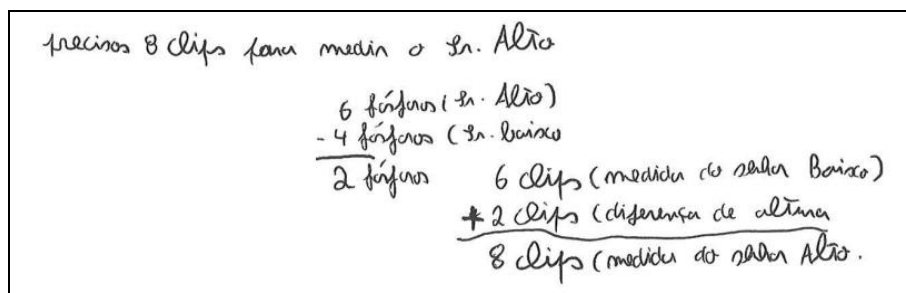 precisos 8 clips para medir o Sr. Alto
6 fósforos (Sr. Alto)
- 4 fósforos (Sr. baixo
2 fósforos
6 clips (medida do senhor Baixo)
+ 2 clips (diferença de altura
8 clips (medida do senhor Alto.